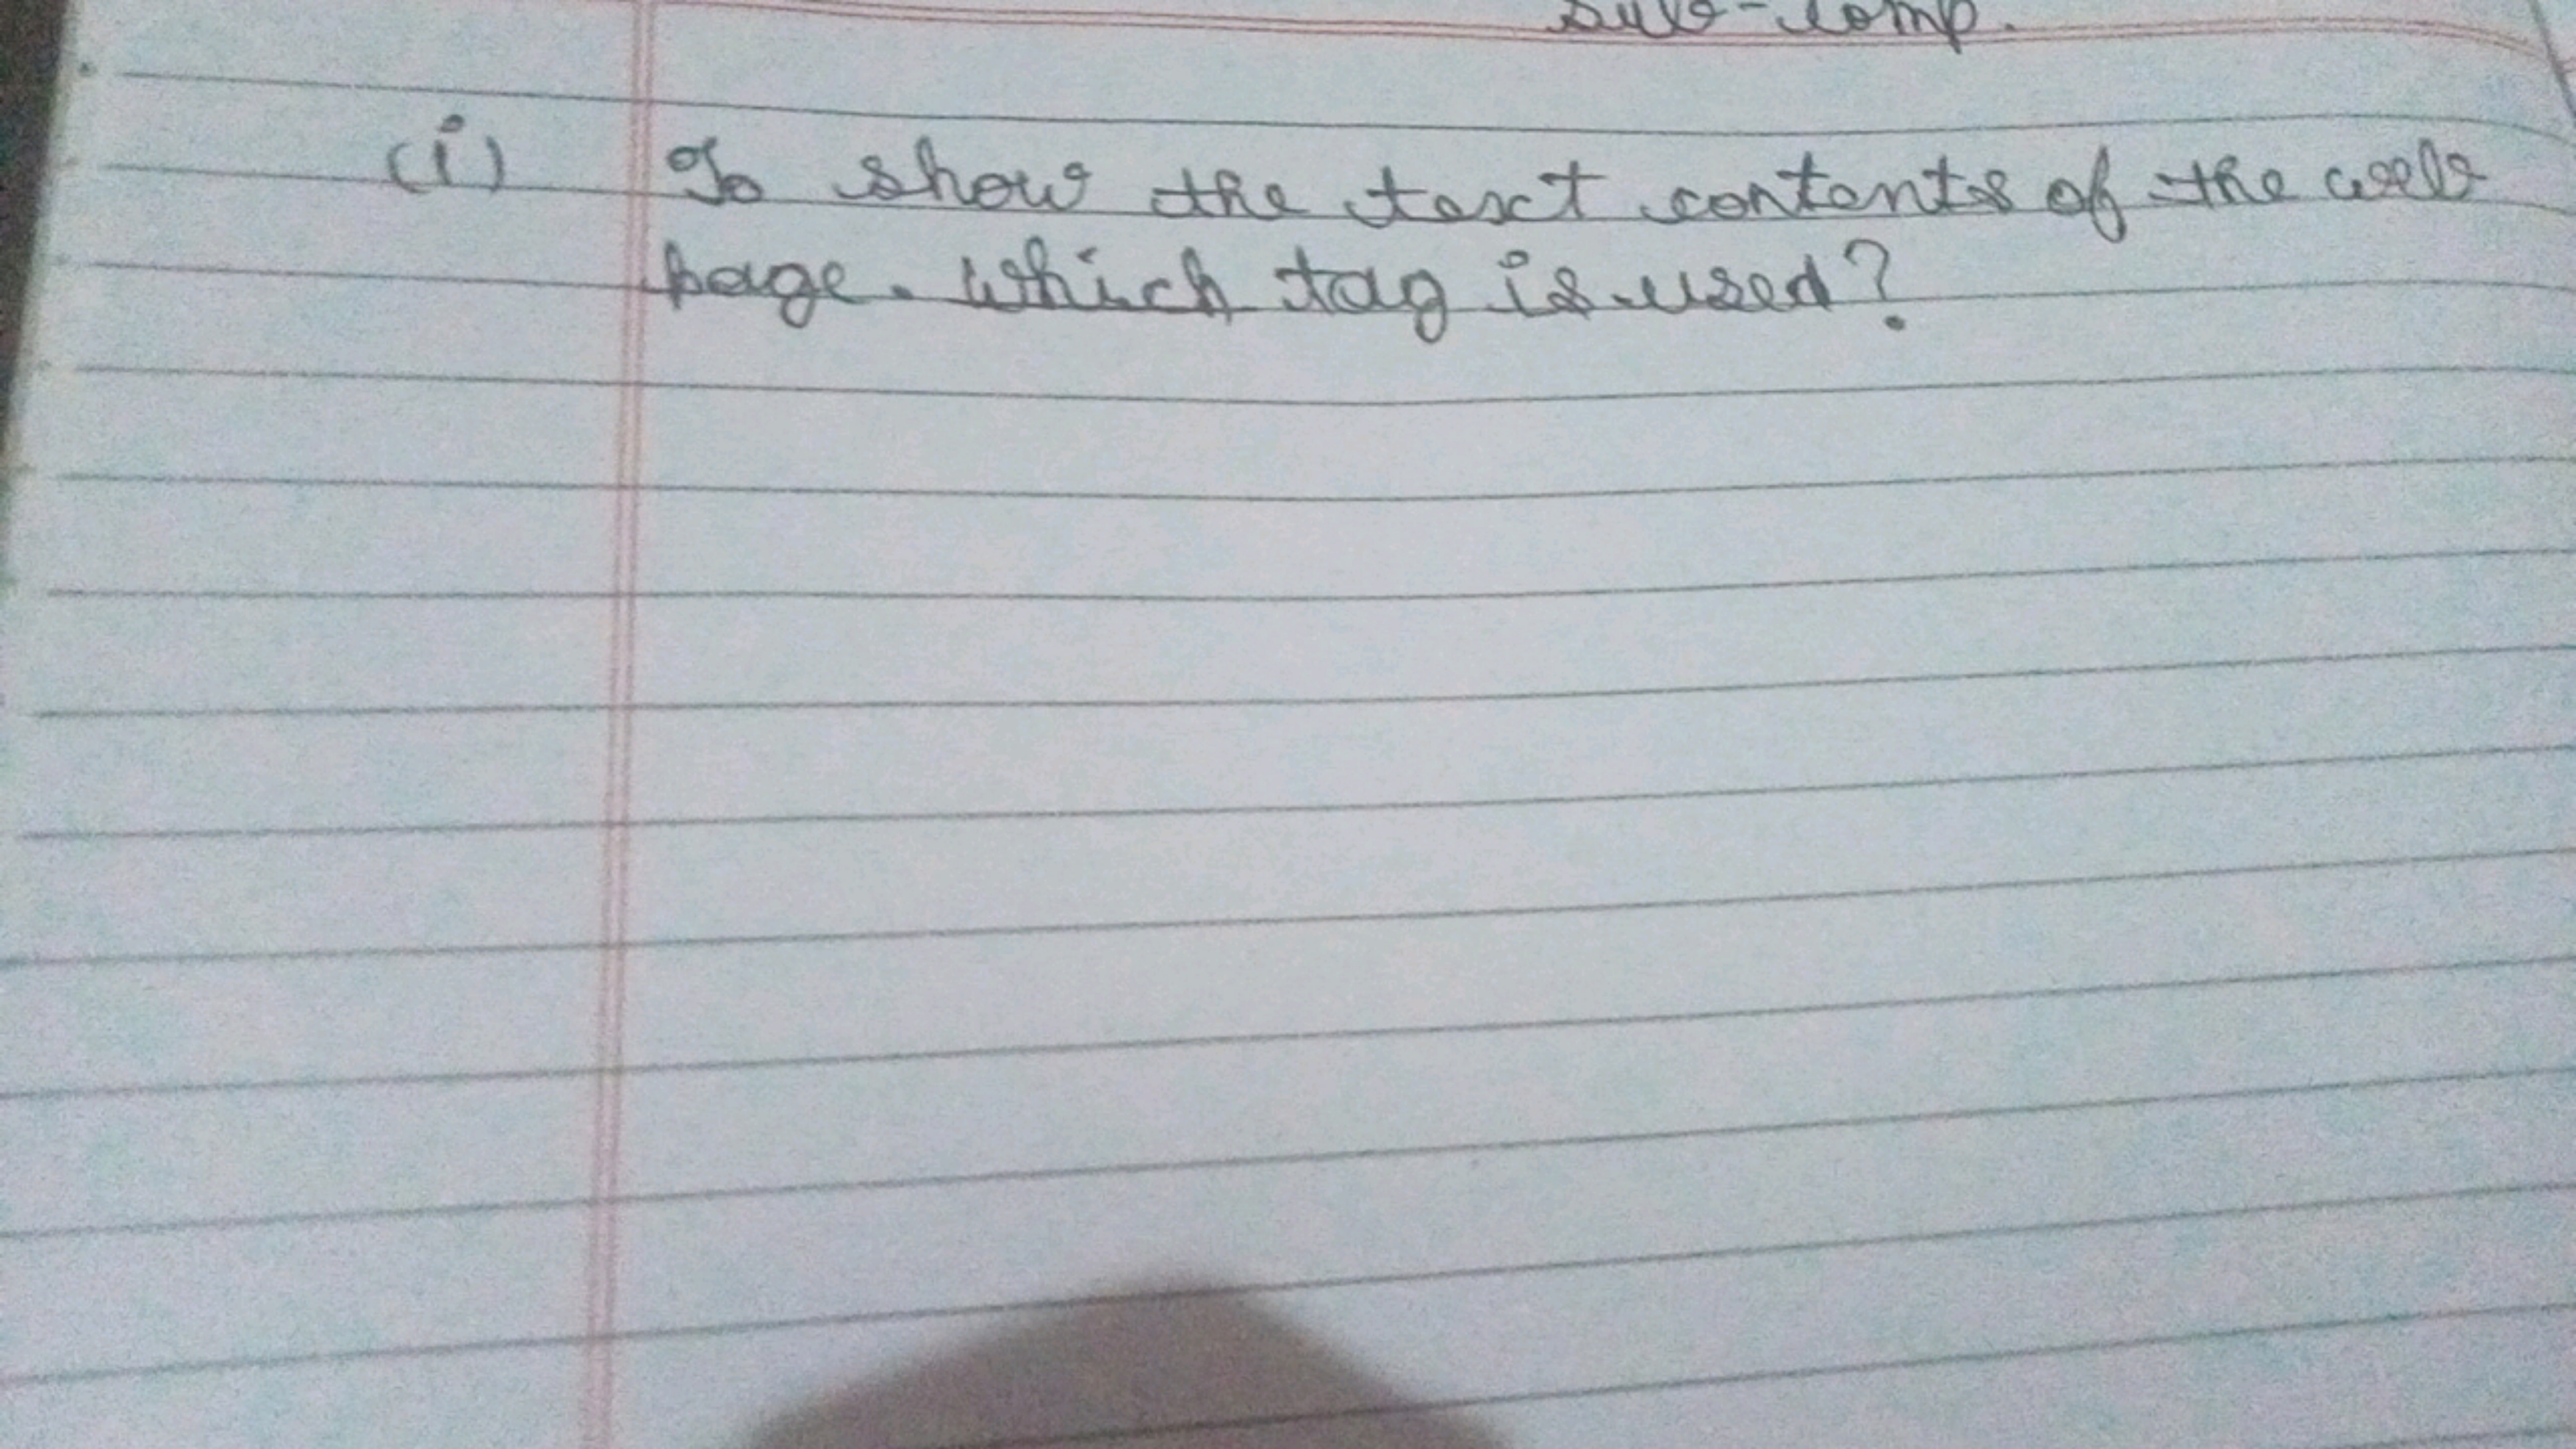 Sub-Comp.
(i) To show the text contents of the web
page. Which tag is used?